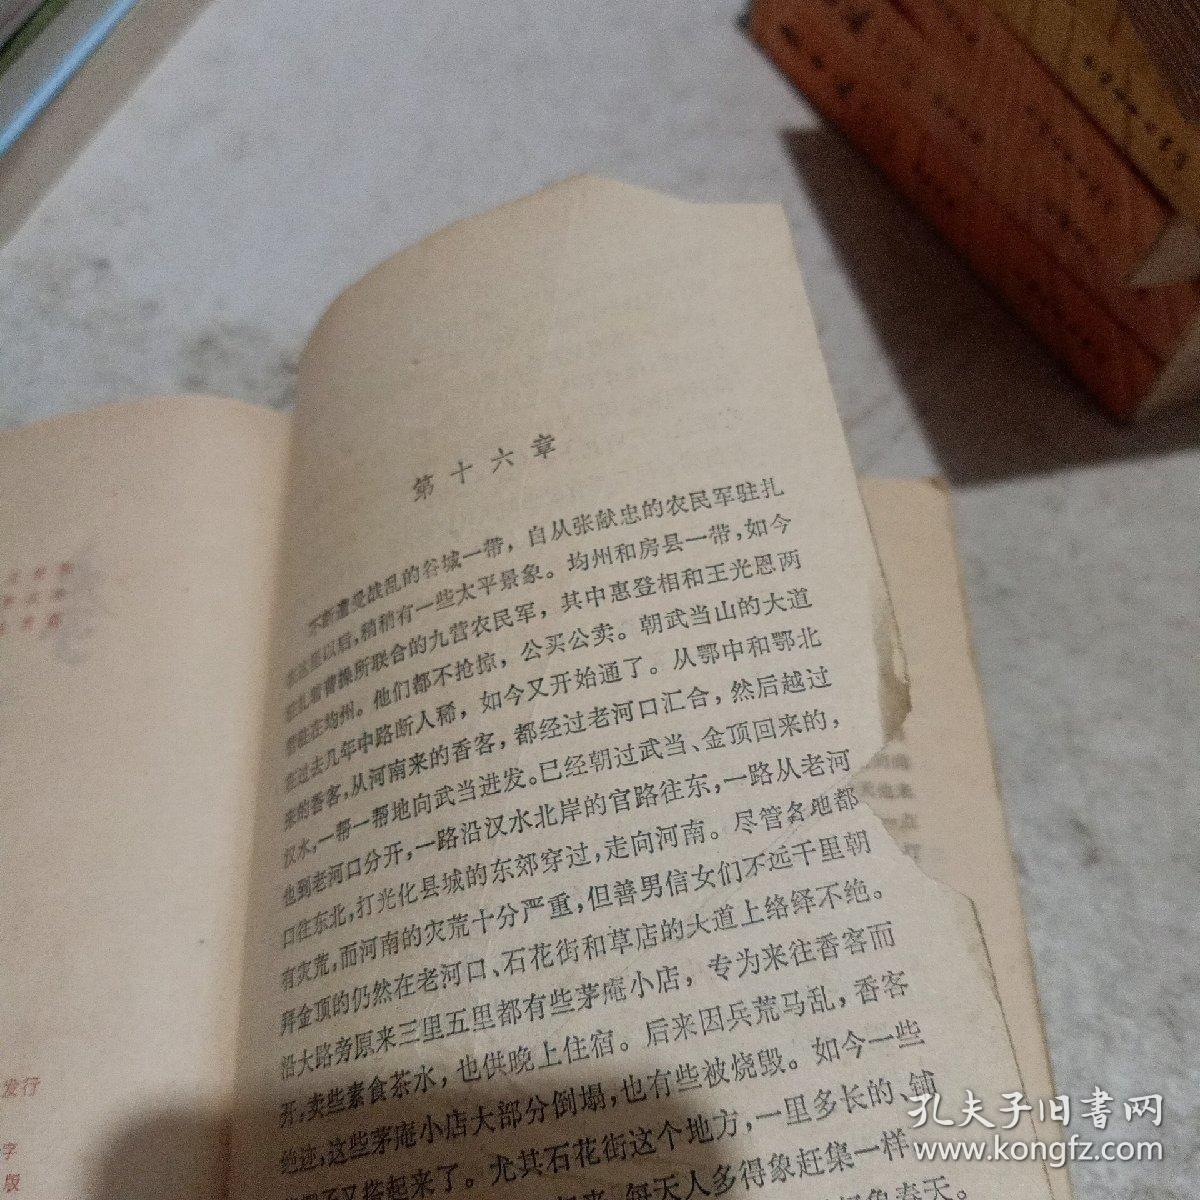 第十六章
不断遭受战乱的谷城一带，自从张献忠的农民军驻扎
在这里以后，稍稍有一些太平景象。均州和房县一带，如今
驻扎着曹操所联合的九营农民军，其中惠登相和王光恩两
营驻在均州。他们都不抢掠，公买公卖。朝武当山的大道
在过去几年中路断人稀，如今又开始通了。从鄂中和鄂北
来的香客，从河南来的香客，都经过老河口汇合，然后越过
汉水，一帮一帮地向武当进发。已经朝过武当、金顶回来的，
也到老河口分开，一路沿汉水北岸的官路往东，一路从老河
口往东北，打光化县城的东郊穿过，走向河南。尽管各地都
有灾荒，而河南的灾荒十分严重，但善男信女们不远千里朝
拜金顶的仍然在老河口、石花街和草店的大道上络绎不绝。
沿大路旁原来三里五里都有些茅庵小店，专为来往香客而
开，卖些素食茶水，也供晚上住宿。后来因兵荒马乱，香客
绝迹，这些茅庵小店大部分倒塌，也有些被烧毁。如今一些
又搭起来了。尤其石花街这个地方，一里多长的、铺
每天人多得象赶集一样
象春天。
发行
字
版
孔夫子旧书网
www.kongfz.com